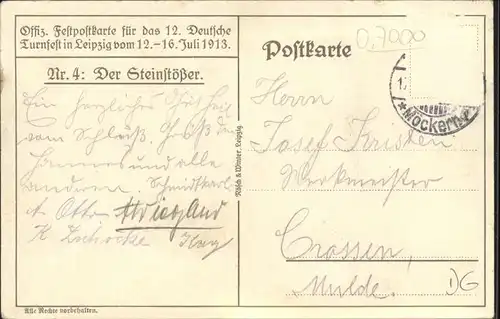 Offiz. Festpostkarte für das 12. Deutsche
Turnfest in Leipzig vom 12.-16. Juli 1913.
Nr. 4: Der Steinstößer.
Ein herzliches Gut Heil
vom Schluß. Gruß den
und alle
anderen. Schmidtkarl
Otto
K Zschocke
Rüsch & Winter, Leipzig
Alle Rechte vorbehalten.
Postkarte
0,7000
*Möckern
Herrn
Josef
Werkmeister
Crossen,
Mulde.
DG